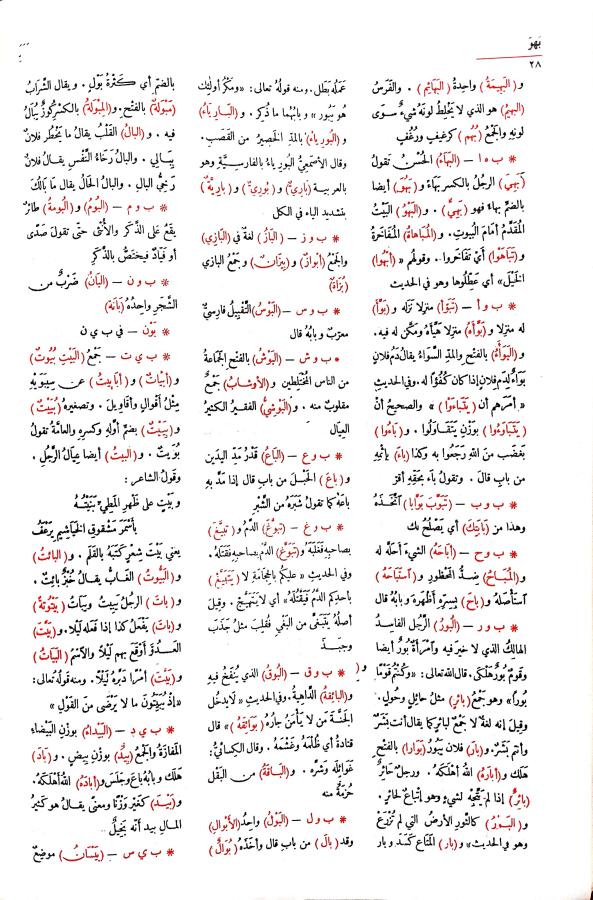 بَهوَ
٢٨
و (البَهِيمَةُ) واحِدةُ (البَهَائِمِ) . والفَرَسُ
(البَهِيمُ) هو الذي لا يَخْلِطُ لونَهُ شيءٌ سِوَى
لونِهِ والجَمْعُ (بُهُم) كرغيفٍ ورُغُفٍ
* ب ه ا – (البَهَاءُ) الحُسْنُ تقولُ
(بَهِيَ) الرجُلُ بالكسر بَهاءً و (بَهُوَ) أيضا
بالضم بهاءً فهو (بَهِيٌّ) . و (البَهْوُ) البَيْتُ
المُقَدَّمُ أمامَ البيوتِ . و (المُبَاهاةُ) المُفَاخَرَةُ
و (تَبَاهَوْا) أَيْ تَفَاخَروا . وقولُهم « (أَبْهُوا)
الخَيْلَ» أي عَطِّلُوها وهو في الحديث
* ب و أ – (تَبَوَّأَ) منزِلا نَزَلَه و (بَوَّأَ)
له منزِلا و (بَوَّأَهُ) منزِلا هَيَّأَهُ ومَكَّنَ له فيه .
و (البَوَاءُ) بالفتح والمدّ السَّوَاءُ يقالُ دَمُ فلانٍ
بَوَاءٌ لِدَمِ فلانٍ إذا كان كُفُؤًا له . وفي الحديث
« أمَرَهم أن (يَتَبَاءَوْا) » والصحيحُ أنْ
(يَتَبَاوَءُوا) بوَزْنِ يَتَقَاوَلُوا . و (بَاءُوا)
بغَضَبٍ منَ اللهِ رَجَعُوا به وكذا (باءَ) بإثمِهِ
من بابِ قالَ . وتقولُ باءَ بحَقِّهِ أقَرَّ
* ب و ب – (تَبَوَّبَ بَوَّابًا) أتَّخَذَهُ
وهذا من (بَابَتِكَ) أي يَصْلُحُ لك
* ب و ح – (أباحَهُ) الشيءَ أحَلَّه له
و (المُبَاحُ) ضِدُّ المَحْظُورِ و (استَبَاحَهُ)
أستَأْصَلَهُ و (باحَ) بِسِرِّهِ أظهَرَهُ وبابُه قالَ
* ب و ر – (البُورُ) الرَّجُلُ الفاسِدُ
الهالِكُ الذي لا خيرَ فيه وآمرأةٌ بُورٌ أيضا
وقومٌ بُورٌ هَلْكَى . قال الله تعالى : «وكُنْتُم قَوْمًا
بُورًا» وهو جَمْعُ (بائِرٍ) مثلُ حائِلٍ وحُولٍ .
وقيلَ إنه لغةٌ لا جَمْعٌ لبائِرٍ كما يقالُ أنتَ بَشَرٌ
وأنتم بَشَرٌ . و (بارَ) فلانٌ يبُورُ (بَوَارا) بالفتح
هَلَكَ و (أبَارَهُ) اللهُ أهْلَكَهُ . ورجلٌ حائِرٌ
(بائِرٌ) إذا لم يَتَّجِهْ لشيءٍ وهو إتباعٌ لحائِرٍ .
كالثَّورِ الأرضُ التي لم تُزْرَعْ
وهو في الحديث» و (بارَ) المَتَاعُ كَسَدَ وبار
عَمَلُه بَطَلَ . ومنه قولُهُ تعالى : «ومَكْرُ أولئكَ
هو يَبُورُ» وبابُهما ما ذُكِرَ . و (البَارِيَاءُ)
و (البُورِياءُ) بالمدّ الحَصِيرُ من القَصَبِ .
وقال الأصمَعيُّ البُورِيَاءُ بالفارسِيَّةِ وهو
بالعربيةِ (بَارِيٌّ) و (بُورِيٌّ) و (بارِيَّةٌ)
بتشديدِ الياء في الكل
* ب و ز – (البازُ) لغةٌ في (البَازِي)
والجمعُ (أبْوازٌ) و (بِيزَانٌ) وجَمْعُ البازي
(بُزَاةٌ)
* ب و س – (البَوْسُ) التَّقْبِيلُ فارسِيٌّ
معرّبٌ وبابُهُ قالَ
* ب و ش – (البَوْشُ) بالفتح الجَماعةُ
من الناسِ المُخْتَلِطينَ و (الأوْشَابُ) جَمْعٌ
مقلوبٌ منه . و (البَوْشِيُّ) الفقيرُ الكثيرُ
العِيَالِ
* ب و ع – (الباعُ) قَدْرُ مَدِّ اليَدَينِ
و (باعَ) الحَبْلَ من بابِ قال إذا مَدَّ به
باعَهُ كما تقولُ شَبَرَهُ من الشِّبْرِ
* ب و غ – (تَبَوَّغَ) الدَّمُ و (تَبَيَّغَ)
بصاحِبِهِ فغَلَبَهُ و (تَبَوَّغَ) الدَّمُ بصاحِبِهِ فقَتَلَهُ .
وفي الحديث « عليكم بالحِجَامةِ لا (يَتَبَيَّغْ)
بأحدِكم الدَّمُ فيَقْتُلَهُ» أي لا يَتَهَيَّجْ . وقيلَ
أصلُه يَتَبَغَّى من البَغْيِ فقُلِبَ مثلُ جَذَبَ
وجَبَذَ
* ب و ق – (البُوقُ) الذي يُنْفَخُ فيهِ
و (البائِقَةُ) الدَّاهِيَةُ . وفي الحديث « لا يدخُلُ
الجَنَّةَ مَن لا يَأْمَنُ جارُهُ (بَوَائِقَهُ) » قال
قتادةُ أي ظُلْمَهُ وغَشْمَهُ . وقال الكِسائيُّ :
غَوَائِلَه وشَرَّه . و (الباقَةُ) من البَقْلِ
حُزْمَةٌ منه
* ب و ل – (البَوْلُ) واحِدُ (الأَبْوالِ)
وقد (بالَ) من بابِ قال وأخَذَهُ (بُوَالٌ)
بالضم أي كَثْرَةُ بَوْلٍ . و يقال الشَّرَابُ
(مَبْوَلَةٌ) بالفتح . و (المِبْوَلَةُ) بالكسر كُوزٌ يُبَالُ
فيه . و (البالُ) القَلْبُ يقالُ ما يَخْطُر فلانٌ
بِبَالِي . والبالُ رَخَاءُ النَّفْسِ يقالُ فلانٌ
رَخِيُّ البالِ . والبالُ الحالُ يقال ما بَالُكَ
* ب و م – (البُومُ) و (البُومةُ) طائِرٌ
يقَعُ على الذَّكَرِ والأُنثى حتى تقولَ صَدًى
أو فَيَّادٌ فيختَصُّ بالذَّكَرِ
* ب و ن – (البَانُ) ضَرْبٌ من
الشَّجَرِ واحِدُهُ (بَانَةٌ)
* بَوْن – في ب ي ن
* ب ي ت – جَمْعُ (البَيْتِ بُيُوتٌ)
و (أبياتٌ) و (أبَايِيتُ) عن سِيبَوَيْهِ
مِثْلُ أقْوَالٍ وأقاوِيلَ . وتصغيرُه (بُيَيْتٌ)
و (بِيَيْتٌ) بضم أوَّلِه وكسرِهِ والعامَّةُ تقولُ
بُوَيْتٌ . و (البيتُ) أيضا عِيَالُ الرَّجُلِ .
وقولُ الشاعر :
و بَيْتٍ على ظَهْرِ المَطِيِّ بَنَيْتُهُ
بأسْمَرَ مَشْقُوقِ الخَيَاشِيمِ يَرْعُفُ
يعني بَيْتَ شِعْرٍ كَتَبَهُ بالقَلَمِ . و (البائِتُ)
و (البَيُّوتُ) الغَابُّ يقالُ خُبْزٌ بائِتٌ .
و (باتَ) الرجُلُ يَبِيتُ ويَباتُ (بَيْتُوتَةً)
و (باتَ) يفْعَلُ كذا إذا فَعَلَهُ لَيْلًا . و (بَيَّتَ)
العَدُوَّ أوْقَعَ بهم لَيْلًا والاسمُ (البَيَاتُ)
و (بَيَّتَ) أمْرًا دَبَّرَه لَيْلًا . ومنه قولُهُ تعالى :
«إذْ يُبَيِّتُونَ ما لا يَرْضَى من القَوْلِ»
* ب ي د – (البَيْداءُ) بوزنِ البَيْضَاءِ
المَفَازَةُ والجمْعُ (بِيدٌ) بوزْنِ بِيضٍ . و (بَادَ)
هَلَكَ وبابُهُ باعَ وجَلَسَ و (أبادَهُ) اللهُ أهْلَكَهُ .
و (بَيْدَ) كغَيْرَ وَزْنًا ومعنًى يقالُ هو كثيرُ
المالِ بيدَ أنَّه بَخِيلٌ
* ب ي س – (بَيْسَانُ) موضِعٌ